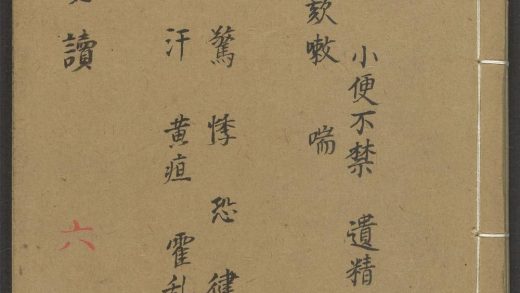 小便不禁 遺精
欬嗽 喘
驚悸恐
汗 黄疸 霍乱
讀
六